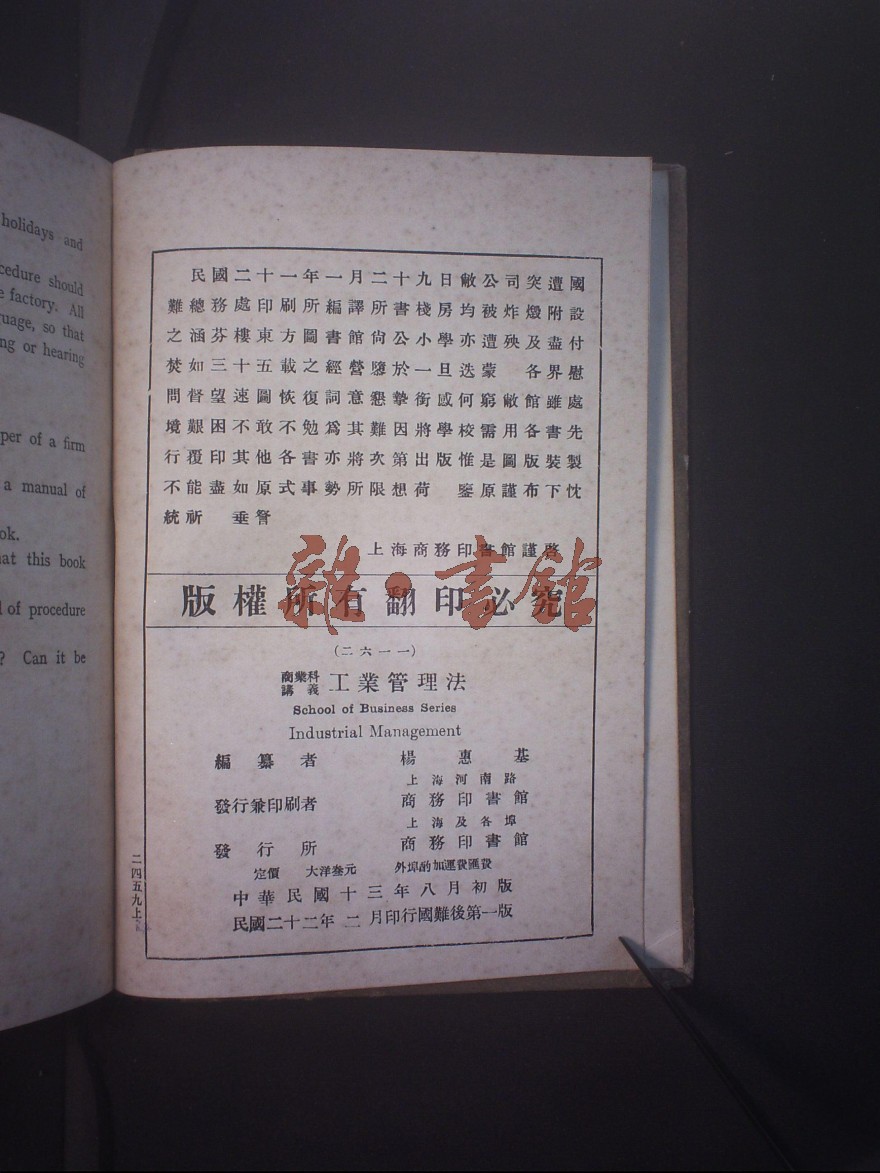 holidays and
cedure should
e factory. All
uage, so that
ng or hearing
per of a firm
a manual of
ok.
at this book
l of procedure
? Can it be
民國二十一年一月二十九日敝公司突遭國
難總務處印刷所編譯所書棧房均被炸燬附設
之涵芬樓東方圖書館尙公小學亦遭殃及盡付
焚如三十五載之經營隳於一旦迭蒙 各界慰
問督望速圖恢復詞意懇摯銜感何窮敝館雖處
境艱困不敢不勉爲其難因將學校需用各書先
行覆印其他各書亦將次第出版惟是圖版裝製
不能盡如原式事勢所限想荷 鑒原謹布下忱
統祈 垂詧
上海商務印書館謹啓
版權所有翻印必究
(二六一一)
商業科講義 工業管理法
School of Business Series
Industrial Management
編纂者 楊惠基
上海河南路
發行兼印刷者 商務印書館
上海及各埠
發行所 商務印書館
定價 大洋叁元 外埠酌加運費匯費
中華民國十三年八月初版
民國二十二年二月印行國難後第一版
二四五九上
雜·書館